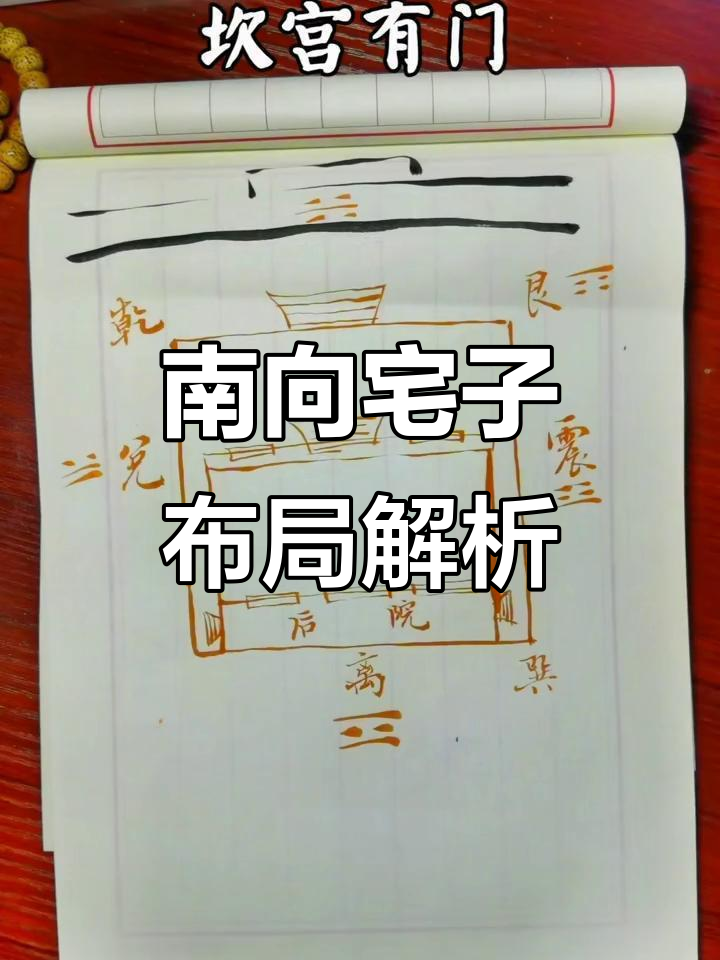 坎宫有门
乾
艮
南向宅子
兑
震
布局解析
后院
离
巽